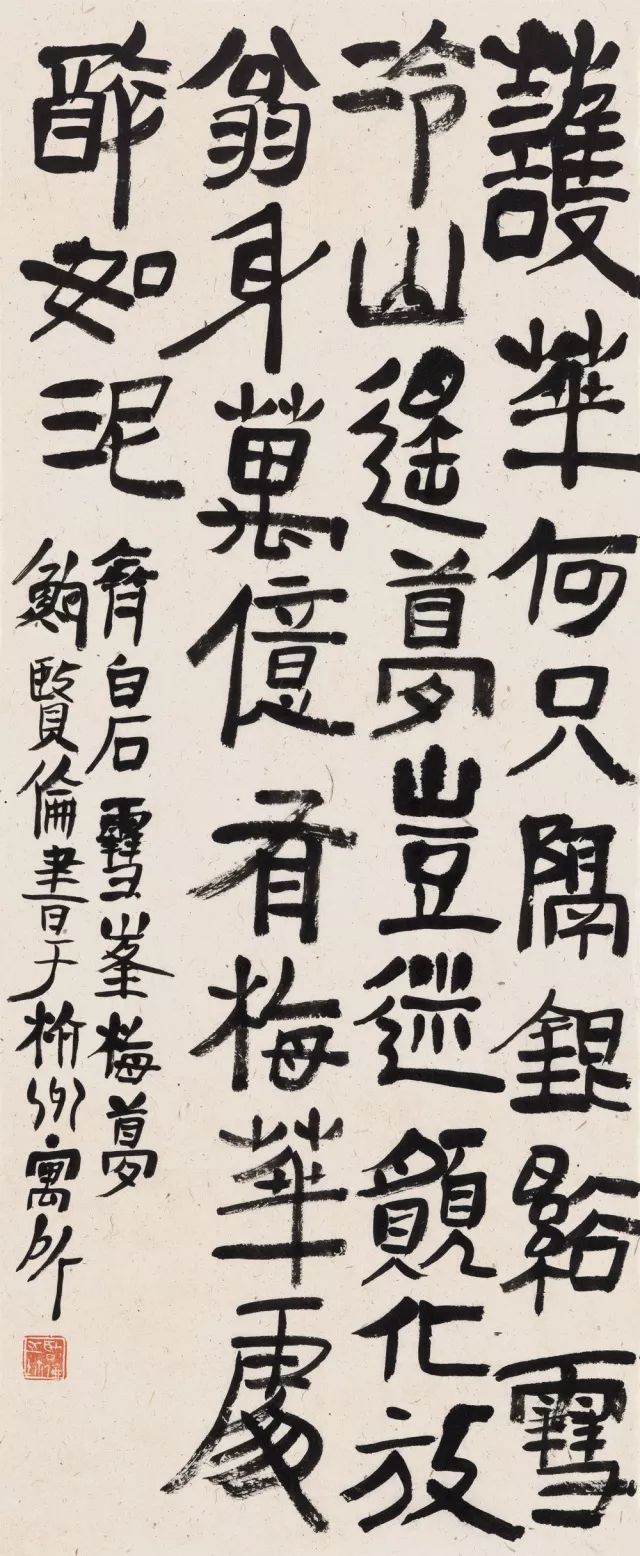 護華何只隔銀谿雪
冷山遙夢豈迷願化放
翁身萬億有梅華處
醉如泥
齊白石雪峯梅夢
鮑賢倫書于杭州寓所